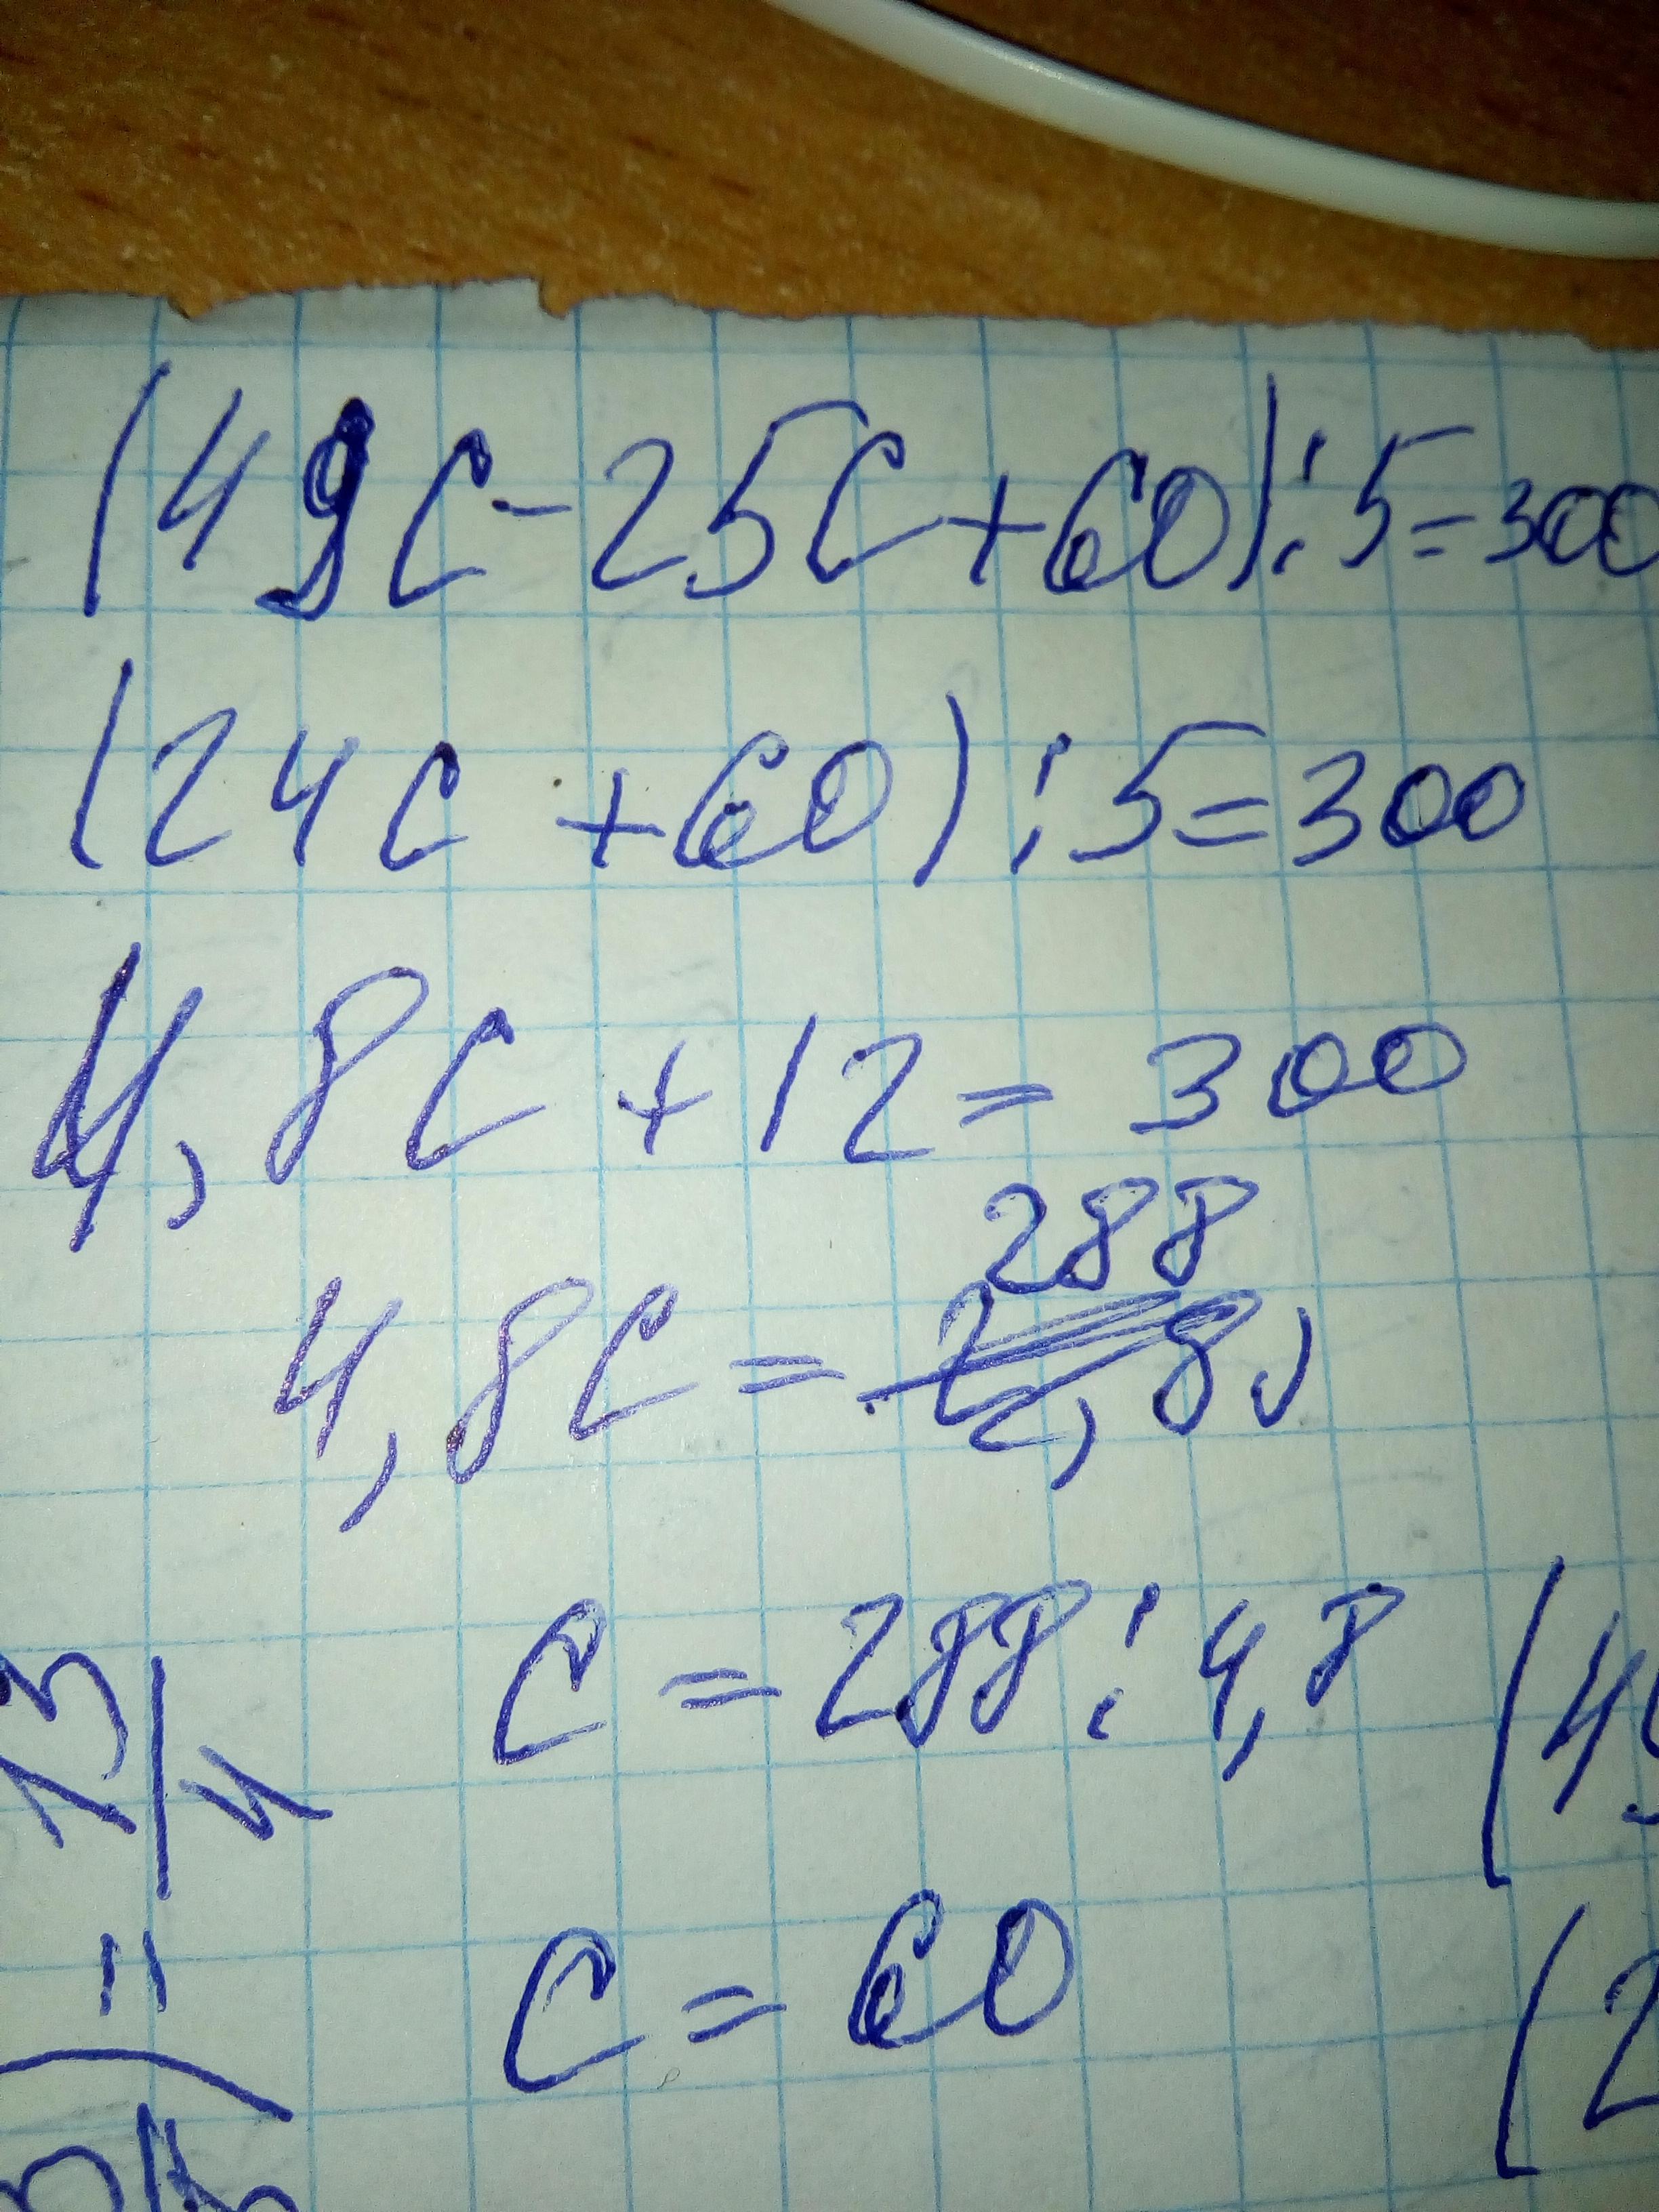 (49C-25C+60):5=300
(24C+60):5=300
4,8C+12=300
288
4,8C=
C=288:4,8
C=60